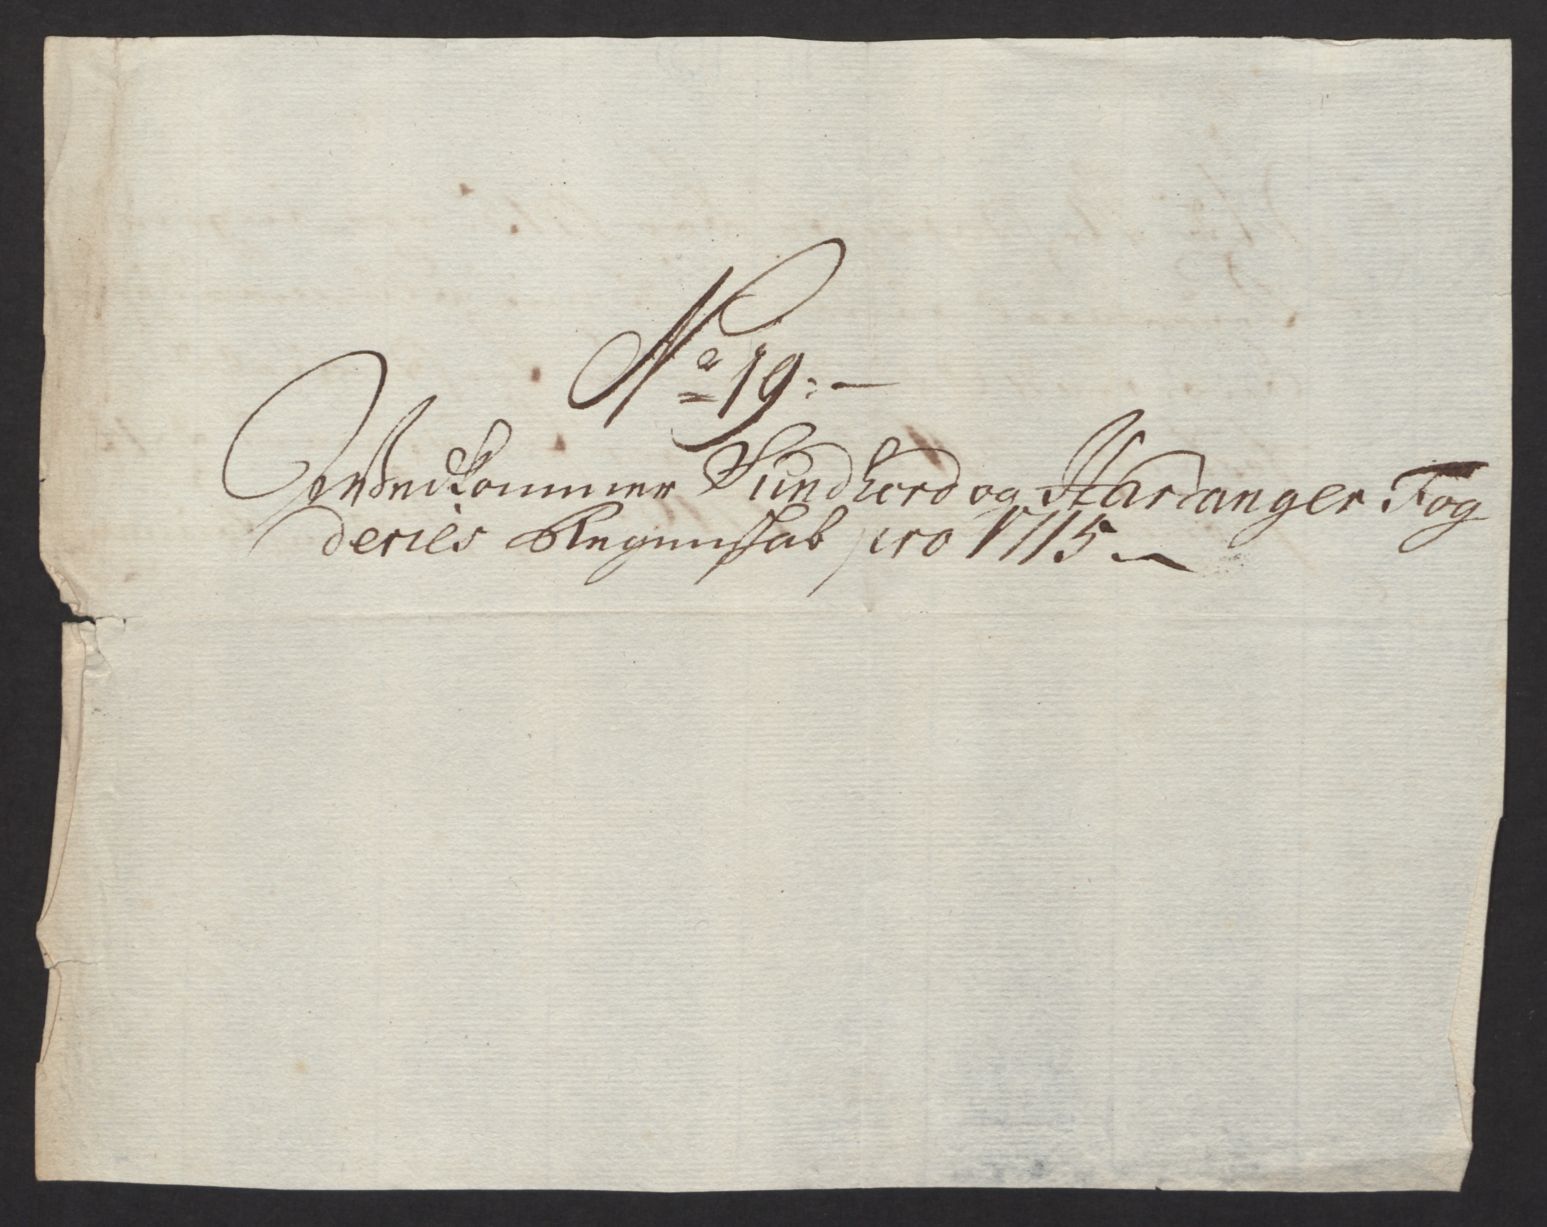 No 19:—
Vedkommer Sundhord og Hardanger Fog
deries Regenskab pro 1715